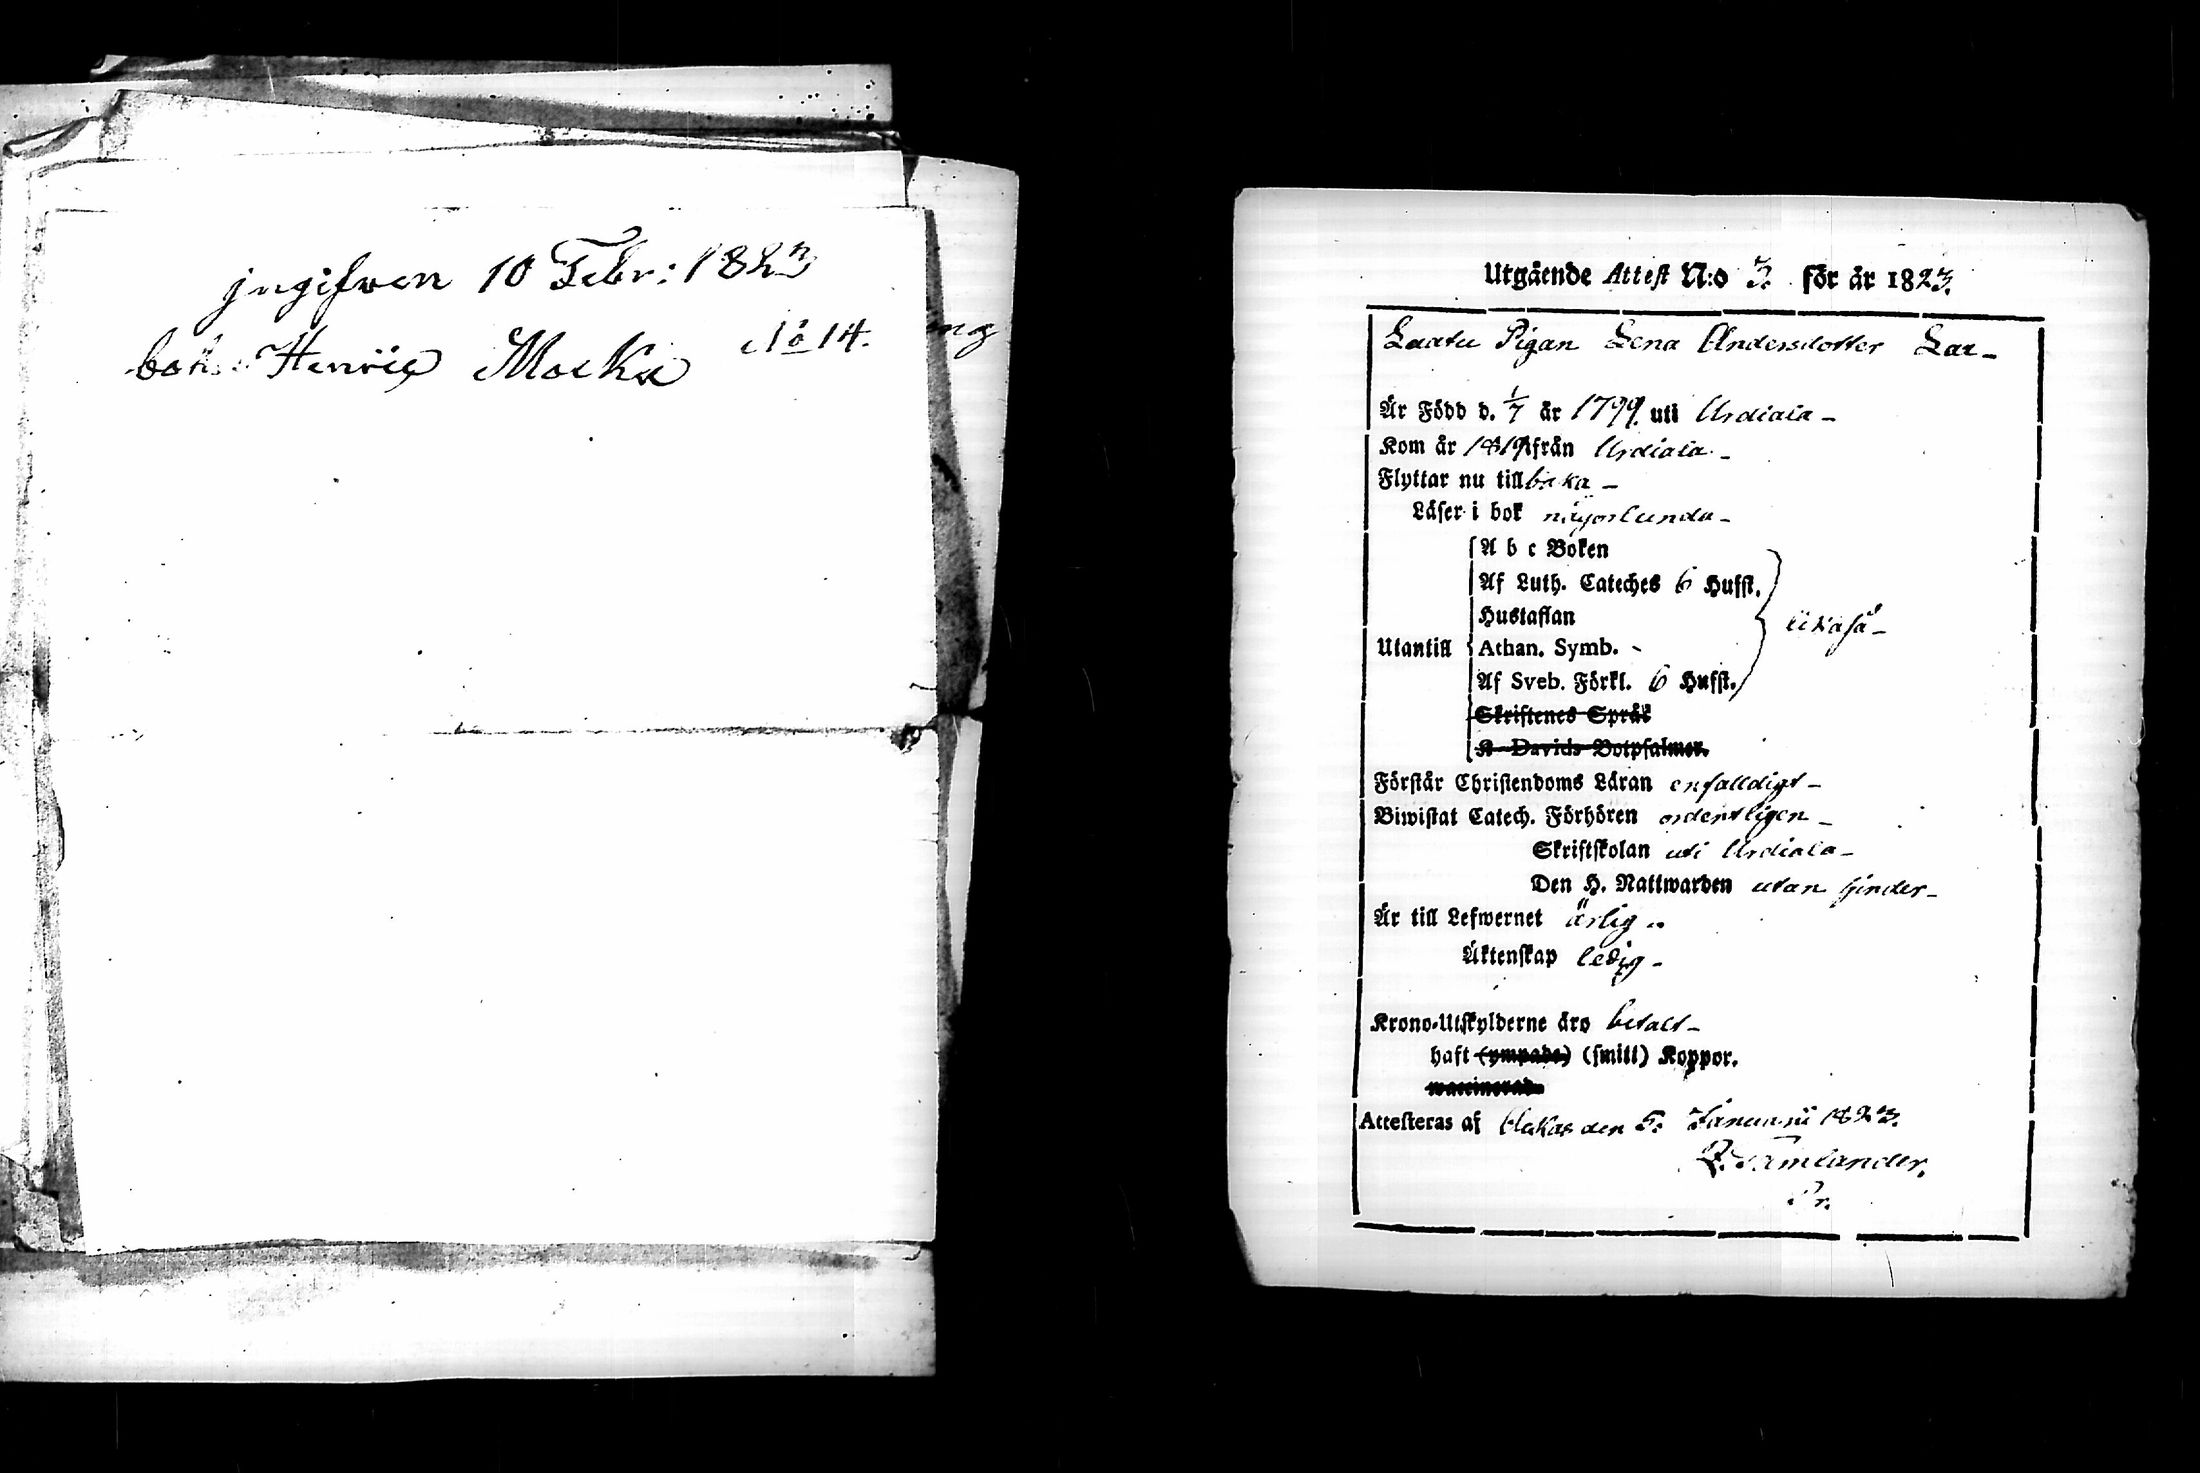 jngifven 10 Febr: 1823
Henric Mocka No 14.
ing
Utgående Attest N:o 3. för år 1823.
Pigan Lena Andersdotter
Är Född d. 1/7 år 1799. uti Urdiala –
Kom år 1819 ifrån Urdiala –
Flyttar nu tillbaka –
Läser i bok någorlunda –
A b c Boken
Af Luth. Cateches 6 Hufst.
Hustaflan
likaså –
Utantill Athan. Symb. -
Af Sveb. Förkl. 6 Hufst.
Skriftenes Språk
K Davids Botpsalmer.
Förstår Christendoms Läran enfaldigt –
Biwistat Catech. Förhören ordentligen –
Skriftskolan uti Urdiala –
Den H. Nattwarden utan hinder –
Är till Lefwernet ärlig –
Äktenskap ledig –
Krono-Utskylderne äro betalt –
haft (ympade) (smitt) Koppor.
waccinerad
Attesteras af den 5. Januarii 1823.